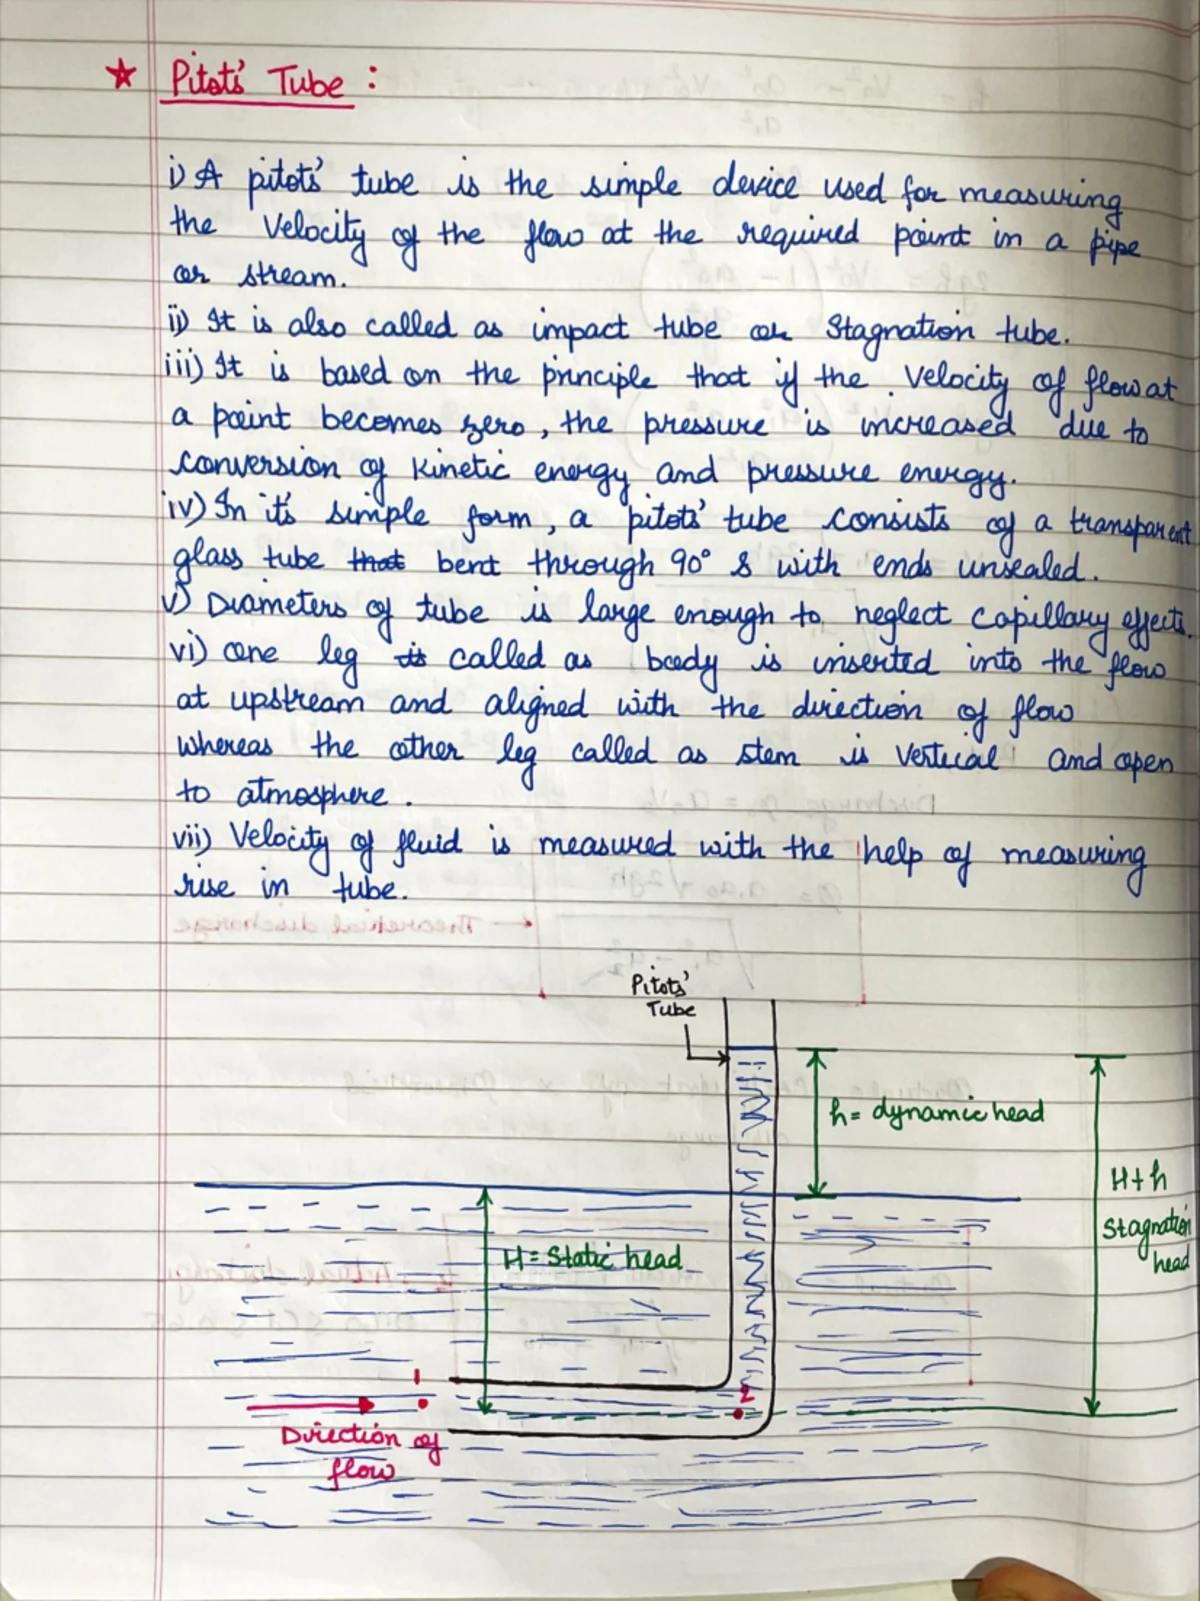 ★ Pitot's Tube :
i) A pitots' tube is the simple device used for measuring
the Velocity of the flow at the required point in a pipe
or stream.
ii) It is also called as impact tube or Stagnation tube.
iii) It is based on the principle that if the Velocity of flow at
a point becomes zero, the pressure is increased due to
conversion of kinetic energy and pressure energy.
iv) In it's simple form, a pitots' tube consists of a transparent
glass tube that bent through 90° & with ends unsealed.
v) Diameters of tube is large enough to neglect capillary effects.
vi) one leg is called as body is inserted into the flow
at upstream and aligned with the direction of flow
whereas the other leg called as stem is Vertical and open
to atmosphere.
vii) Velocity of fluid is measured with the help of measuring
rise in tube.
Pitots'
Tube
h= dynamic head
H+h
Stagnation
head
H= Static head
1
2
Direction of
flow